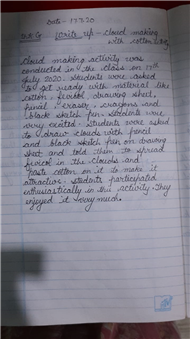 Date - 17.7.20
Write up - Cloud making
with cotton
Cloud making activity was
conducted in the class on 17th
July 2020. Students were asked
to get ready with material like
cotton, fevicol, drawing sheet,
pencil, eraser, crayons and
black sketch pen. Students were
very excited. Students were asked
to draw clouds with pencil
and black sketch pen on drawing
sheet and told them to spread
fevicol in the clouds and
paste cotton on it to make it
attractive. Students participated
enthusiastically in this activity. They
enjoyed it very much.